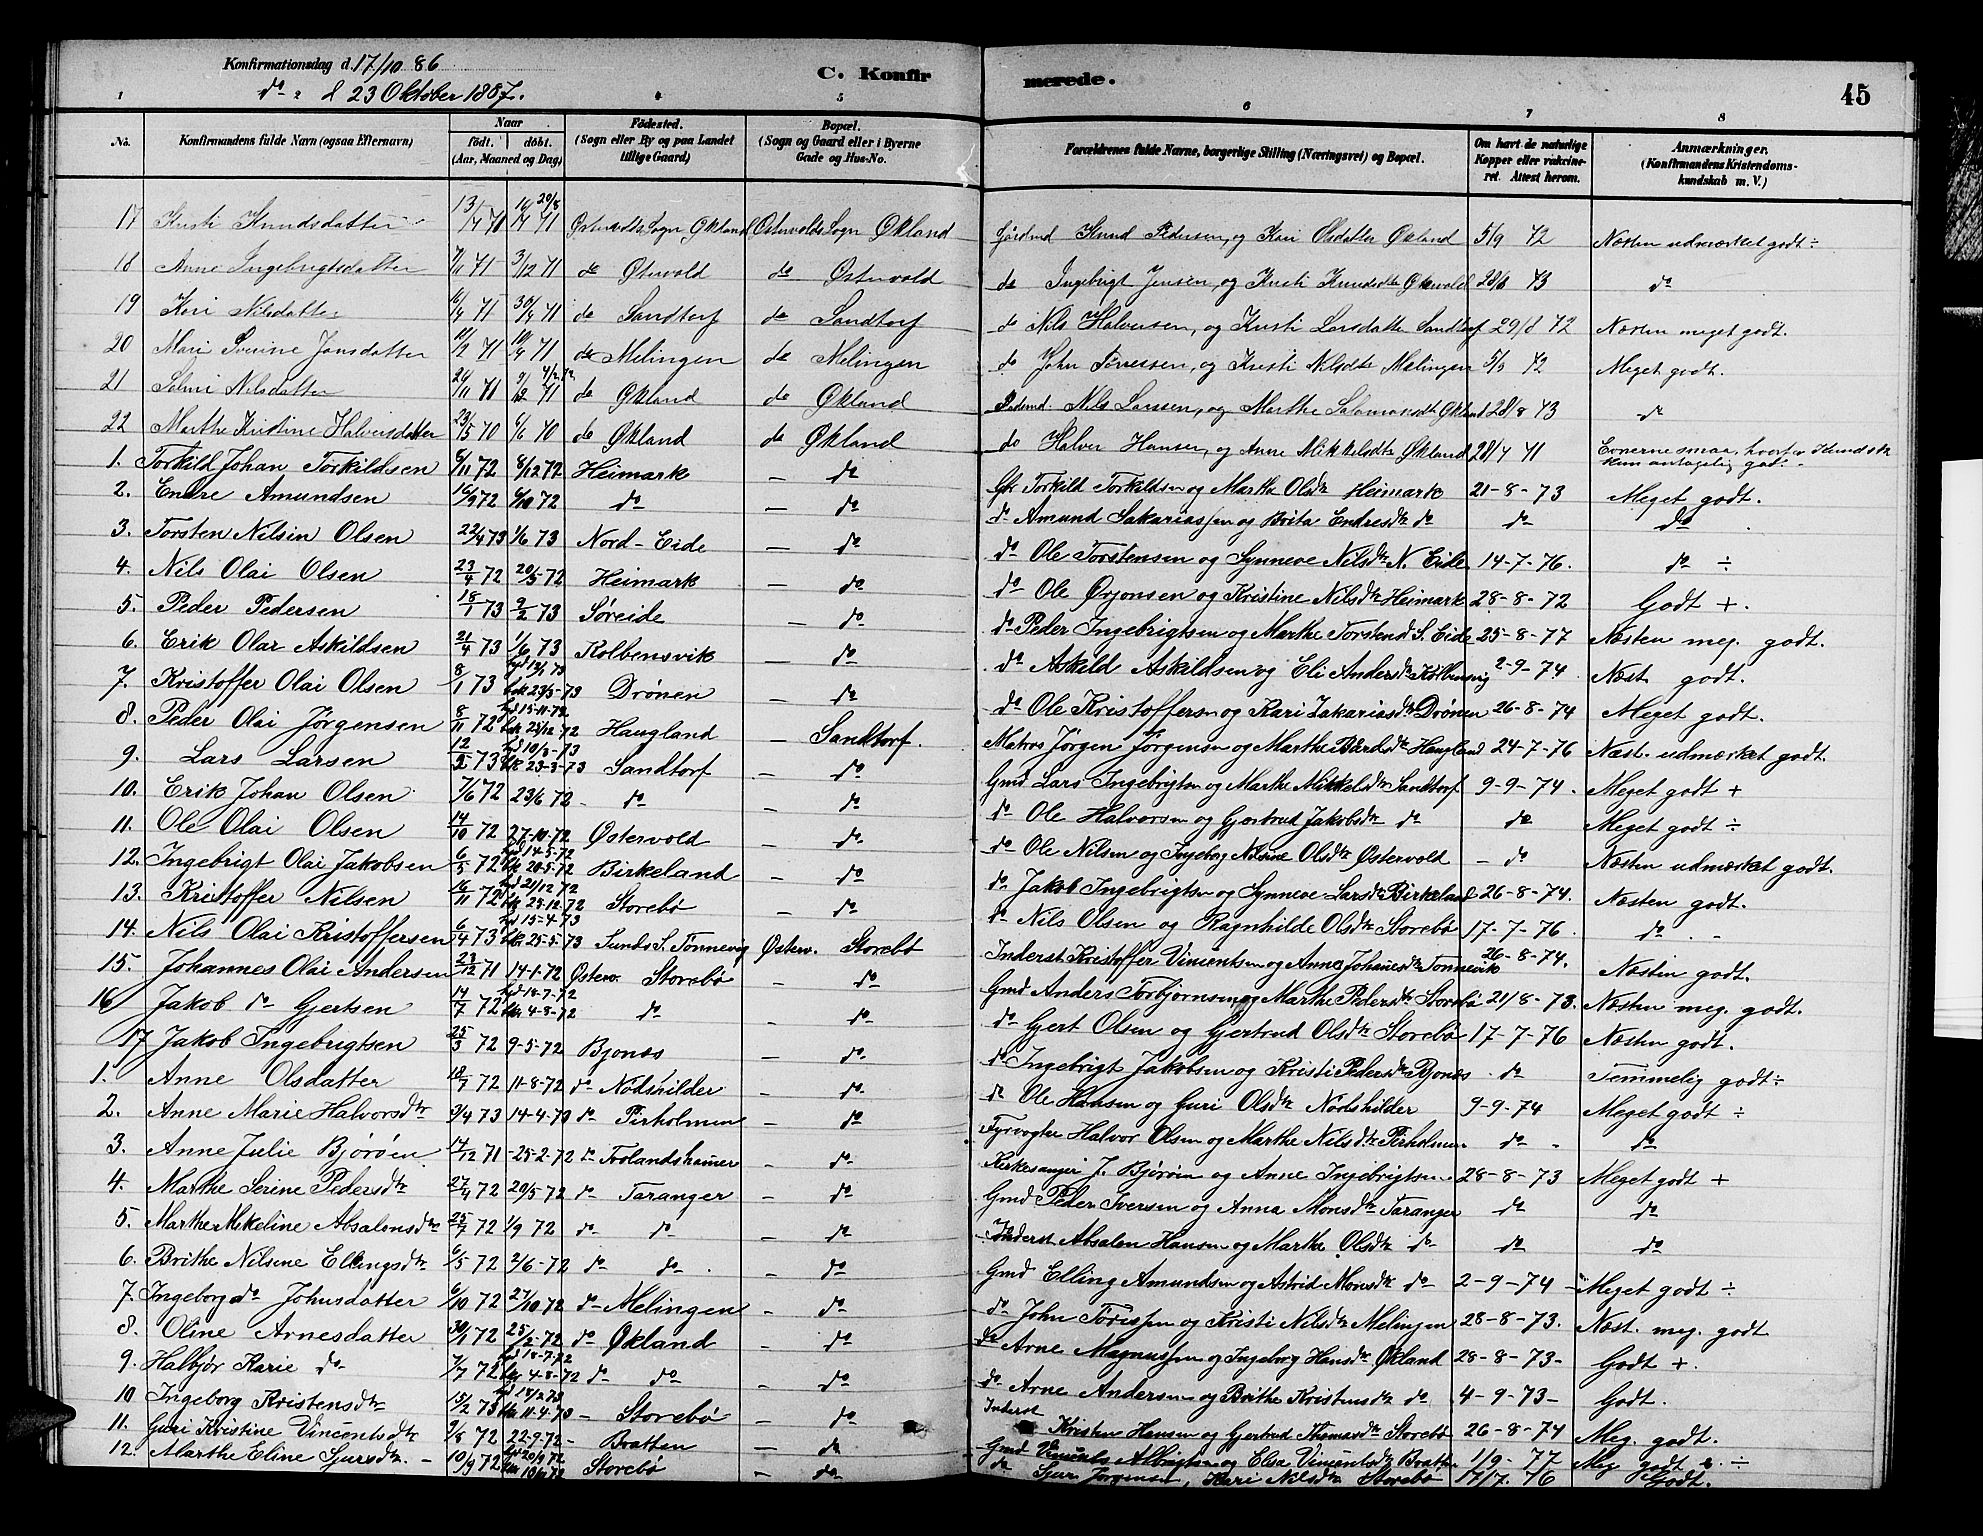 Konfirmationsdag d. 17/10 86
do " d 23 Oktober 1887.
C. Konfirmerede.
45
1 4 5 6 7 8
No. Konfirmandens fulde Navn (ogsaa Efternavn) Naar födt. döbt. (Aar, Maaned og Dag) Födested. (Sogn eller By og paa Landet tillige Gaard) Bopæl. (Sogn og Gaard eller i Byerne Gade og Hus-No. Forældrenes fulde Navne, borgerlige Stilling (Næringsvei) og Bopæl. Om havt de naturlige Kopper eller vakcineret. Attest herom. Anmærkninger. (Konfirmandens Kristendomskundskab m. V.)
17 Kristi Knudsdatter Østervolds Sogn Økland Østervolds Sogn Økland Knud Pedersen, og Kari Olsdatter Økland 5/9 72 Næsten udmærket godt ÷
18 Anne Ingebrigtsdatter 7/11 71 3/12 71 do Østervold do Østervold do Ingebrigt Jensen, og Kristi Knudsdtr Østervold 73 do
19 Kari Nilsdatter 71 71 do Sandtorf do Sandtorf do Nils Halvorsen, og Kristi Larsdatter Sandtorf 29/8 72 Næsten meget godt.
20 Mari Sverine Jonsdatter 71 71 do Melingen do Melingen do John Tørressen, og Kristi Nilsdtr Melingen 5/9 72 Meget godt.
21 Selmi Nilsdatter 71 71 do Økland do Økland Nils Larssen, og Marthe Salamonsdtr Økland 28/8 73 do
22 Marthe Kristine Halversdatter 70 70 do Økland do Økland do Halver Hansen, og Anne Mikkelsdtr Økland 71 Evnerne smaa, hvorfor Kundsk. kun antagelig god.
1. Torkild Johan Torkildsen 6/11 72 8/12 72 Heimark — do Gk Torkild Torkildsen og Martha Olsdtr Heimark 21-8-73 Meget godt.
2. Endre Amundsen 16/9 72 6/10 72 do — do do Amund Sakariassen og Brita Endresdtr do do do
3. Torsten Nilsin Olsen 22/4 73 1/6 73 Nord-Eide — do do Ole Torstensen og Synneve Nilsdtr N. Eide 14-7-76. do ÷
4. Nils Olai Olsen 23/4 72 20/5 72 Heimark — do do Ole Ørjonsen og Kristine Nilsdtr Heimark 28-8-72 Godt +.
5. Peder Pedersen 18/1 73 9/2 73 Søreide — do do Peder Ingebrigtsen og Marthe Torstensd S. Eide 25-8-77 Næsten meg. godt.
6. Erik Olai Askildsen 21/4 73 1/6 73 Kolbensvik — do do Askild Askildsen og Eli Andersdtr Kolbensvig 2-9-74 Næst. godt.
7. Kristoffer Olai Olsen 8/1 73 23/3-73 Drönen — do do Ole Kristoffersen og Kari Zakariasdtr Drönen 26-8-74 Meget godt.
8. Peder Olai Jørgensen 8/11 72 hjd 15-11-72 Haugland — Sandtorf. Matros Jørgen Jørgensen og Marthe Bårdsdtr Haugland 24-7-76 Næst. udmærket godt.
9. Lars Larsen 12/2 73 23-3-73 Sandtorf — do Gmd Lars Ingebrigtsen og Marthe Mikkelsdtr Sandtorf 9-9-74. Meget godt +
10. Erik Johan Olsen 7/6 72 23/6 72 - do — do do Ole Halvorsen og Gjertrud Jakobsdtr do do Meget godt ÷
11. Ole Olai Olsen 14/10 72 27-10-72 Østervold — do do Ole Nilsen og Ingeborg Nilsine Olsdtr Østervold - do Næsten udmærket godt.
12. Ingebrigt Olai Jakobsen 6/5 72 hjd 14-5-72 20-5-72 Birkeland — do do Jakob Ingebrigtsen og Synneve Larsdtr Birkeland 26-8-74. Næsten godt.
13. Kristoffer Nilsen 16/11 72 hjd 21/12 72 25-12-72 Storebø — do do Nils Olsen og Ragnhilde Olsdtr Storebø 17-7-76 do
14. Nils Olai Kristoffersen 6/4 73 hjd 15-4-73 25-5-73 Sunds S. Tonnevig Østerv. Storebø Inderst Kristoffer Vincentsen og Anne Johannesdtr Tonnevik 26-8-74. Næsten godt.
15. Johannes Olai Andersen 23/12 71 14-1-72 Østerv. Storebø - do Gmd Anders Torbjørnsen og Marthe Pedersdtr Storebø 21/8-73. Næsten meg. godt.
16 Jakob do Gjertsen 14/7 72 hjd 18-7-72 4-8-72 do - do do Gjert Olsen og Gjertrud Olsdtr Storebø 17-7-76 Næsten godt.
17 Jakob Ingebrigtsen 25/3 72 9-5-72 Bjonæs - do do Ingebrigt Jakobsen og Kristi Pedersdtr Bjonæs do Temmelig godt ÷
1. Anne Olsdatter 18/7 72 11-8-72 do Nodshilder - do do Ole Hansen og Guri Olsdtr Nodshilder 9-9-74 Meget godt ÷
2. Anne Marie Halvorsdtr 9/4 73 14-4-73 do Pirholmen - do Fyrvogter Halvor Olsen og Marthe Nilsdtr Pirholmen do do
3. Anne Julie Bjørøen 14/12 71 25-2-72 do - do Kirkesanger J. Bjøröen og Anne Ingebrigtsen 28-8-73 Meget godt +
4. Marthe Serine Pedersdtr 27/4 72 20/5 72 do Taranger - do Gmd Peder Iversen og Anna Monsdtr Taranger do do
5. Marthe Mikeline Absalonsdtr 25/7 72 1/9 72 do do - do Inderst Absalon Hansen og Marthe Olsdtr do do do
6. Brithe Nilsine Ellingsdtr 6/5 72 2/6-72 do do - do Gmd Elling Amundsen og Astrid Monsdtr do 2-9-74 Meget godt ÷
7. Ingeborg do Johnsdatter 6/10 72 27/10 72 do Melingen - do do John Töressen og Kristi Nilsdtr Melingen 28-8-73. Næst. meg. godt
8. Oline Arnesdatter 30/1 72 25/2-72 do Økland - do do Arne Magnussen og Ingeborg Hansdtr Økland 28-8-73- Godt +.
9. Halbjør Karie do 7/7 72 hjd 18-7-72 4-8-72 do do - do do Arne Andersen og Brithe Kristensdtr do 4-9-73- Godt.
10 Ingeborg Kristensdtr 15/2 73 hjd 18/2 73 11-4-73 - Storebø - do Inderst Kristen Hansen og Gjertrud Thomasdtr Storebø 26-8-74 Meg. godt.
11. Guri Kristine Vincentsdtr 9/8 72 22-9-72 - Bratten - do Gmd Vincents Albrigtsen og Elsa Vincentsdtr Bratten 1/9-77 Meg godt ÷
12. Marthe Eline Sjursdtr. 10/9 72 hjd 20/9 72 Storebø - do do Sjur Jørgensen, Kari Nilsdtr Storebø 17/7. 76 Godt.